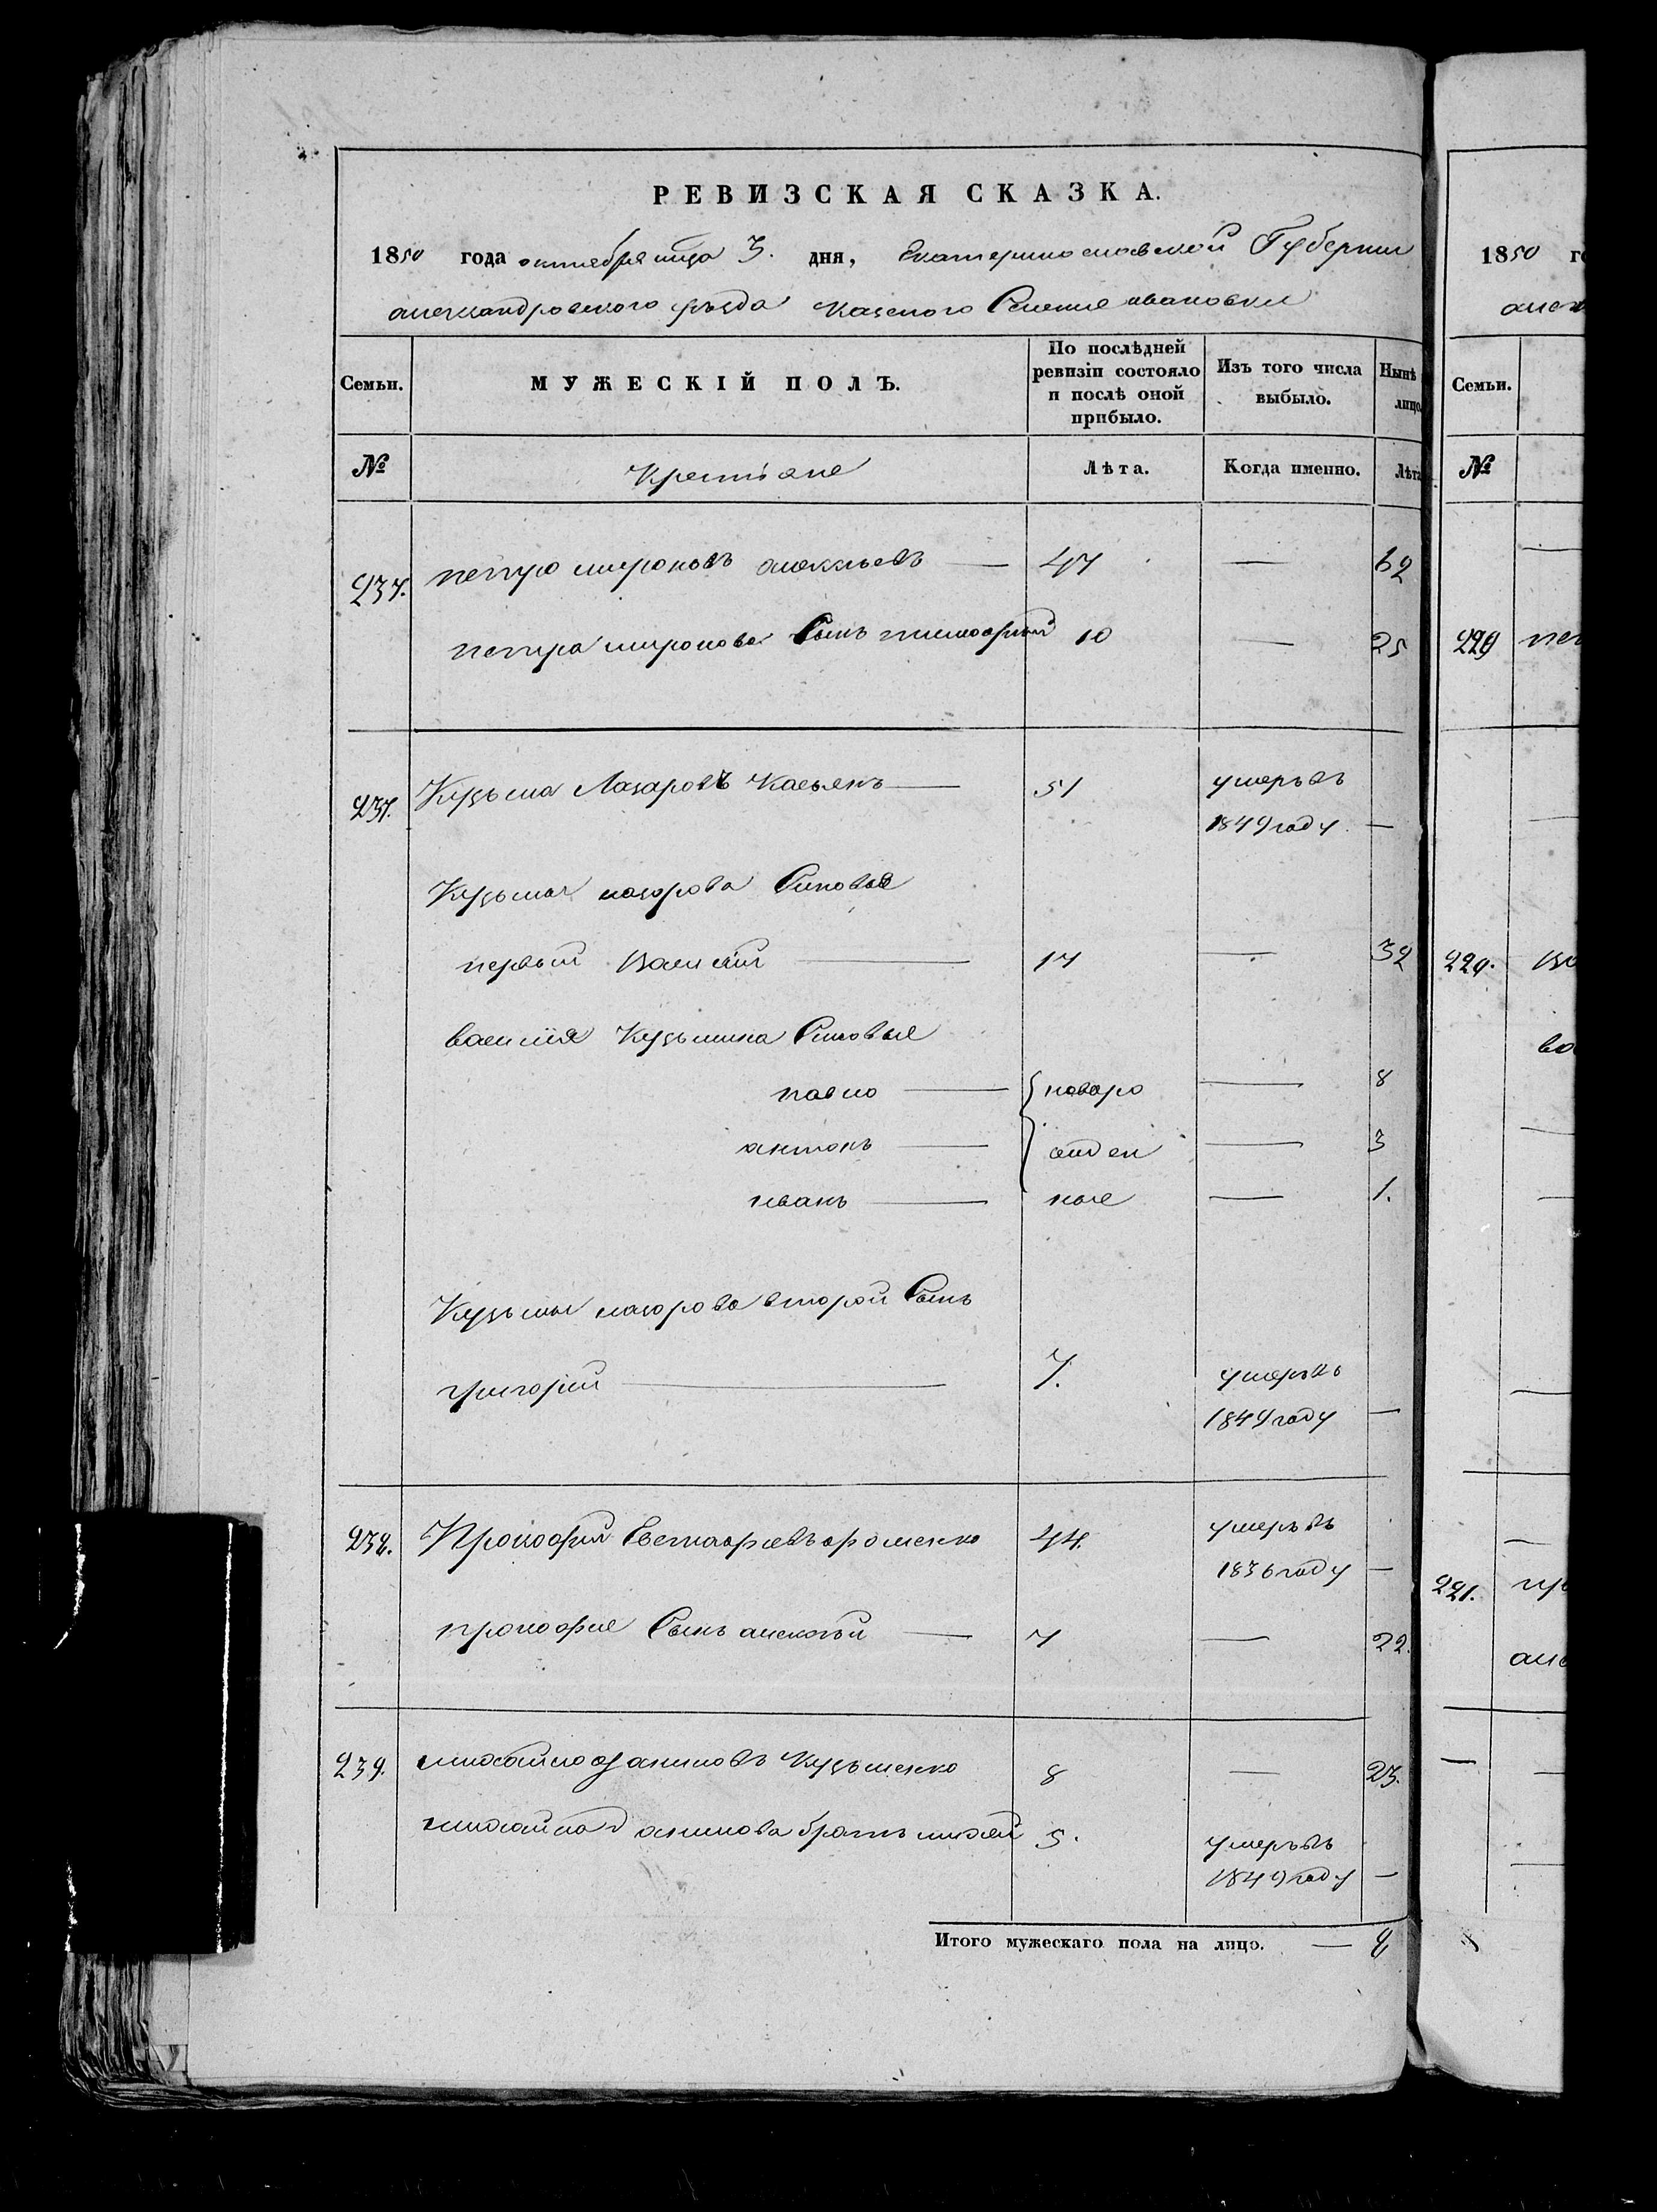 РЕВИЗСКАЯ СКАЗКА.
1850 года октября мца 3. дня, Екатеринославской Губернии
александровского уезда казеного Селения ивановки
Семьи.
МУЖЕСКІЙ ПОЛЪ.
По послѣдней
ревизіи состояло
и послѣ оной
прибыло.
Изъ того числа
выбыло.
Нынѣ
лицо
№
Крестiане
Лѣта.
Когда именно.
Лѣта
237. петро мироновъ 47 — 62
петра миронова Сынъ тимофѣй 10 — 25
237. Кузьма Лазаровъ Касьянъ — 51 умеръ въ
1849 году —
Кузьмы лазарова Синовья
первый Василiй — 17 — 32
василия Кузьмина Синовья
павло — новоро — 8
антонъ — жден — 3
иванъ — ные — 1.
Кузьмы лазарова второй Сынъ
григорий — 7. умеръ въ
1849 году —
238. Прокофий Евстафиевъ 44. умеръ въ
1836 году —
прокофия Сынъ алексѣй — 7 — 22.
239. михайло акимовъ Кузьменко 8 — 23.
михайла акимова братъ михей 5. умеръ въ
1849 году —
Итого мужескаго пола на лицо. — 8
1850 го
алек
Семьи.
№
229 пет
220. ва
ва
221. гр
але